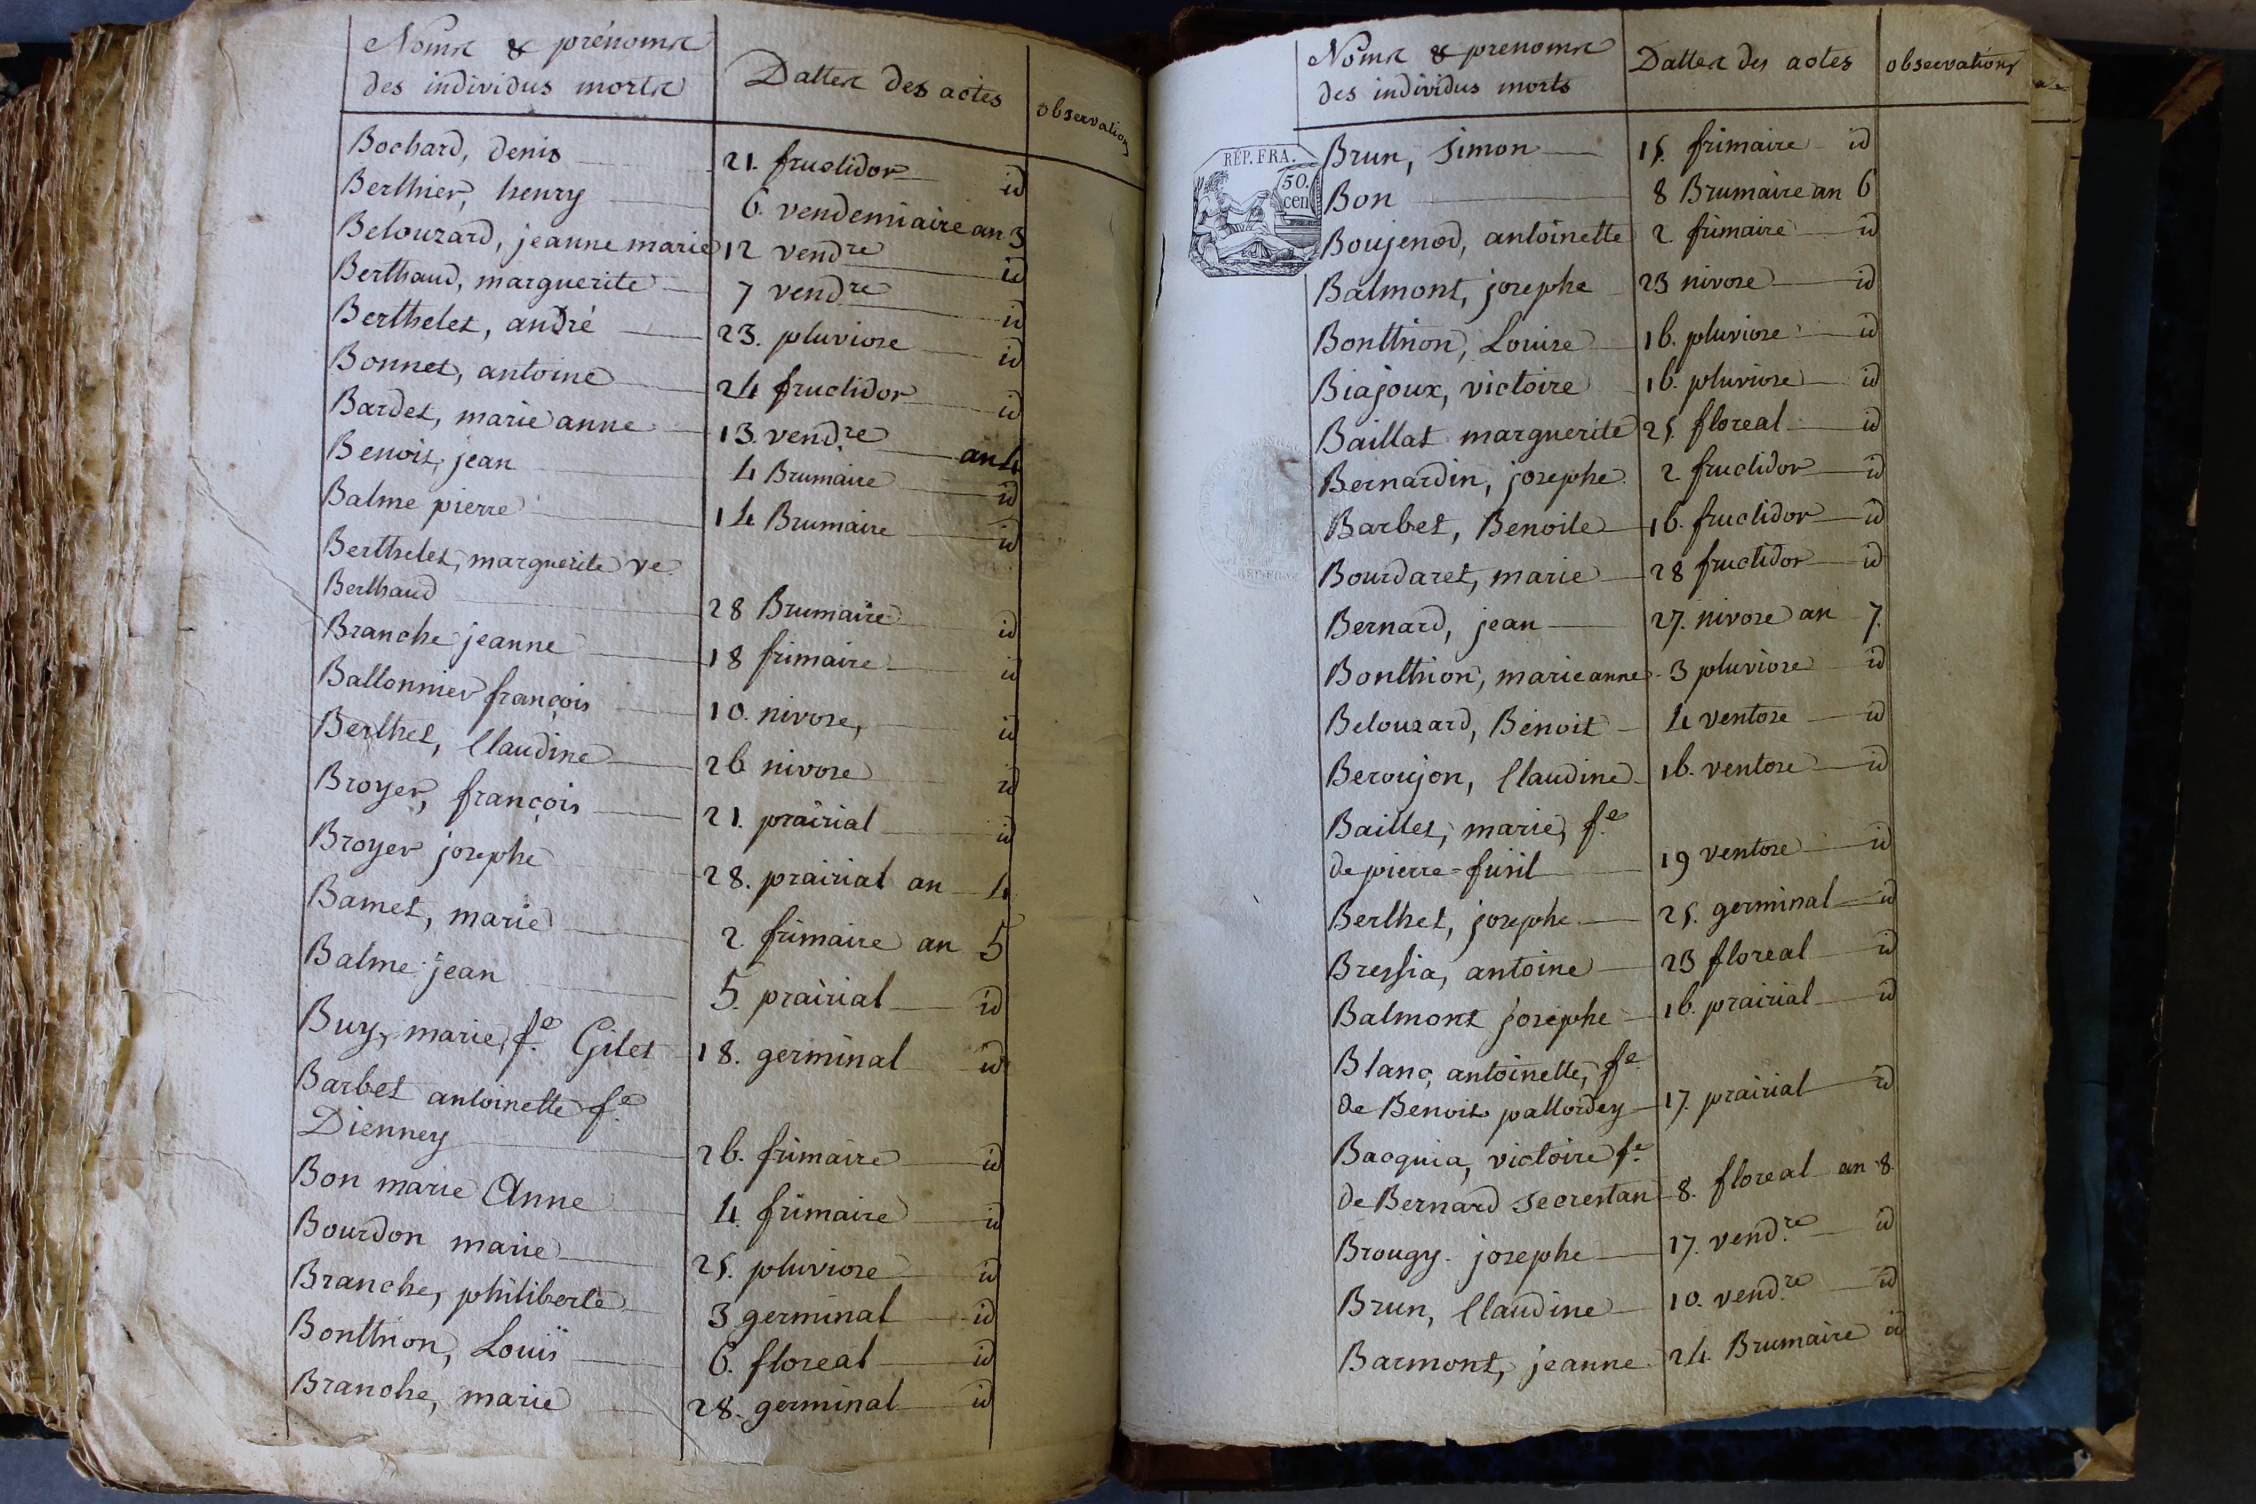 Noms & prénoms
des individus morts
Dattes des actes
observation
Bochard, denis 21. fructidor id
Berthier, henry 6. vendemiaire an 3
Belouzard, jeanne marie 12 vendre id
Berthaud, marguerite 7 vendre id
Berthelet, andré 23. pluviose id
Bonnet, antoine 24 fructidor id
Bardet, marie anne 13. vendre an 4
Benoit, jean 4 Brumaire id
Balme pierre 14 Brumaire id
Berthelet, marguerite ve
Berthaud 28 Brumaire id
Branche jeanne 18 frimaire id
Ballonnier françois 10. nivose, id
Berthet, Claudine 26 nivose id
Broyer, françois 21. prairial id
Broyer josephe 28. prairial an 4
Bamet, marie 2. frimaire an 5
Balme jean 5. prairial id
Buy, marie, fe. Gilet 18. germinal id
Barbet antoinette fe.
Dienney 26. frimaire id
Bon marie Anne 4. frimaire id
Bourdon marie 25. pluviose id
Branche, philiberte 3 germinal id
Bonthion, Louis 6. floreal id
Branche, marie 28. germinal id
Noms & prenoms
des individus morts
Dattes des actes
observations
REP. FRA.
50.
cen
Brun, Simon 15. frimaire id
Bon 8 Brumaire an 6
Boujenod, antoinette 2. frimaire id
Balmont, josephe 23 nivose id
Bonthion, Louise 16. pluviose id
Biajoux, victoire 16. pluviose id
Baillat marguerite 25. floreal id
Bernardin, josephe. 2. fructidor id
Barbet, Benoite 16. fructidor id
Bourdaret, marie 28 fructidor id
Bernard, jean 27. nivose an 7.
Bonthion, marie anne 3 pluviose id
Belouzard, Benoit 4 ventose id
Beroujon, Claudine 16. ventose id
Baillet, marie, fe.
de pierre fusil 19 ventose id
Berthet, josephe 25. germinal id
Bressia, antoine 23 floreal id
Balmont josephe 16. prairial id
Blanc, antoinette, fe.
de Benoit pallordey 17. prairial id
Bacquia, victoire fe.
de Bernard Secrestan 8. floreal an 8.
Brougy. josephe 17. vend.re id
Brun, Claudine 10. vend.re id
Barmont, jeanne 24. Brumaire id